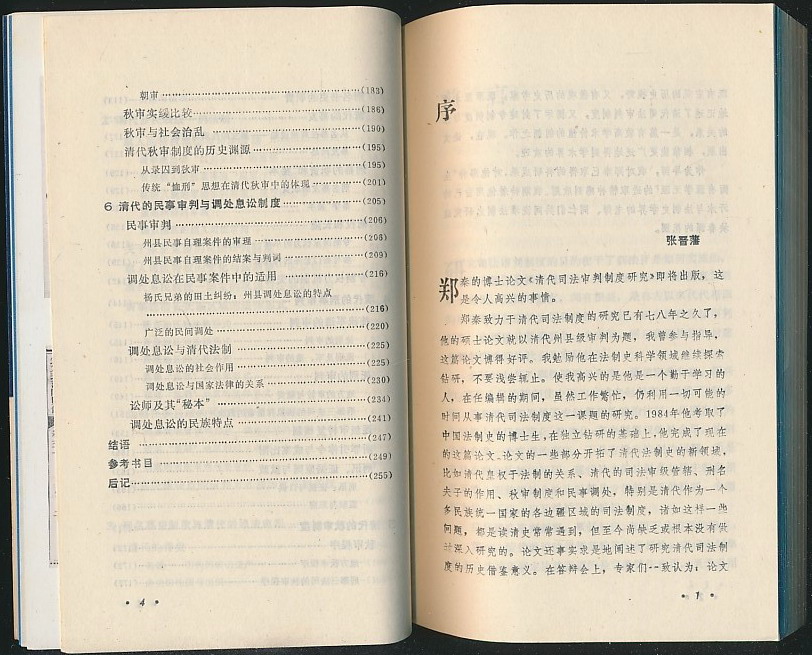 朝审……(183)
秋审实缓比较……(186)
秋审与社会治乱……(190)
清代秋审制度的历史渊源……(195)
从录囚到秋审……(195)
传统“恤刑”思想在清代秋审中的体现……(201)
6 清代的民事审判与调处息讼制度……(205)
民事审判……(206)
州县民事自理案件的审理……(206)
州县民事自理案件的结案与判词……(209)
调处息讼在民事案件中的适用……(216)
杨氏兄弟的田土纠纷：州县调处息讼的特点
……(216)
广泛的民间调处……(220)
调处息讼与清代法制……(225)
调处息讼的社会作用……(225)
调处息讼与国家法律的关系……(230)
讼师及其“秘本”……(234)
调处息讼的民族特点……(241)
结语……(247)
参考书目……(249)
后记……(255)
• 4 •
序
张晋藩
郑秦的博士论文《清代司法审判制度研究》即将出版，这
是令人高兴的事情。
郑秦致力于清代司法制度的研究已有七八年之久了，
他的硕士论文就以清代州县级审判为题，我曾参与指导，
这篇论文博得好评。我勉励他在法制史科学领域继续探索
钻研，不要浅尝辄止。使我高兴的是他是一个勤于学习的
人，在任编辑的期间，虽然工作繁忙，仍利用一切可能的
时间从事清代司法制度这一课题的研究。1984年他考取了
中国法制史的博士生，在独立钻研的基础上，他完成了现在
的这篇论文。论文的一些部分开拓了清代法制史的新领域，
比如清代皇权于法制的关系、清代的司法审级管辖、刑名
夫子的作用、秋审制度和民事调处，特别是清代作为一个
多民族统一国家的各边疆区域的司法制度，诸如这样一些
问题，都是读清史常常遇到，但至今尚缺乏或根本没有做
过深入研究的。论文还事实求是地阐述了研究清代司法制
度的历史借鉴意义。在答辩会上，专家们一致认为：论文
• 1 •